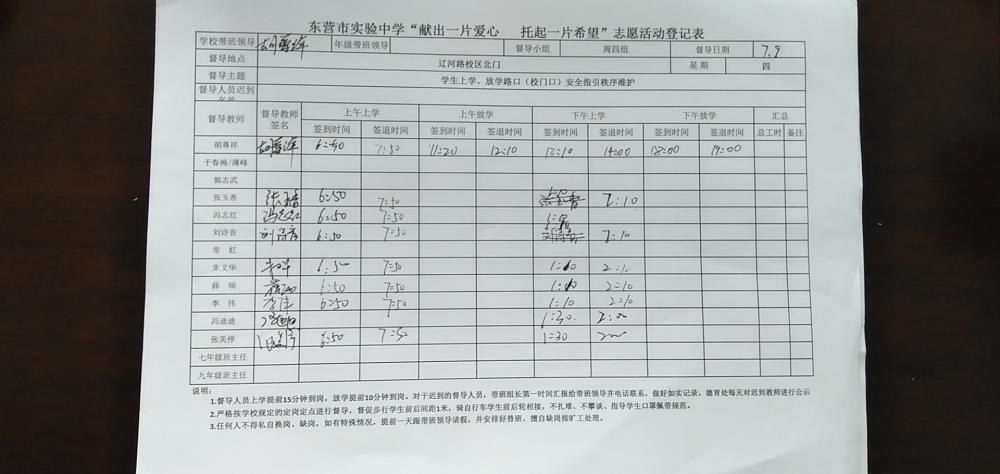 东营市实验中学“献出一片爱心 托起一片希望”志愿活动登记表
学校带班领导 胡尊祥 年级带班领导 督导小组 周四组 督导日期 7.9
督导地点 辽河路校区北门 星期 四
督导主题 学生上学、放学路口（校门口）安全指引秩序维护
督导人员迟到
督导教师 督导教师签名 上午上学 上午放学 下午上学 下午放学 汇总
签到时间 签退时间 签到时间 签退时间 签到时间 签退时间 签到时间 签退时间 总工时 备注
胡尊祥 胡尊祥 6:50 7:50 11:20 12:10 13:10 14:00 18:00 19:00
于春梅/薄峰
郭志武
张玉香 张玉香 6:50 7:50 2:10
冯志红 冯志红 6:50 7:50
刘诗音 刘诗音 6:50 7:50 2:10
常 虹
朱文华 6:50 7:50 1:10 2:10
薛 瑞 6:50 7:50 1:10 2:10
李 伟 李伟 6:50 7:50 1:10 2:10
冯迪迪 1:30. 2:00
张美停 6:50 7:50 1:30
七年级班主任
九年级班主任
说明，
1.督导人员上学提前15分钟到岗，放学提前10分钟到岗。对于迟到的督导人员，带班组长第一时间汇报给带班领导并电话联系，做好如实记录，德育处每天对迟到教师进行公示
2.严格按学校规定的定岗定点进行督导，督促步行学生前后间距1米，骑自行车学生前后轮相接，不扎堆、不攀谈、指导学生口罩佩带规范。
3.任何人不得私自换岗、缺岗，如有特殊情况，提前一天跟带班领导请假，并安排好替班，擅自缺岗按旷工处理。